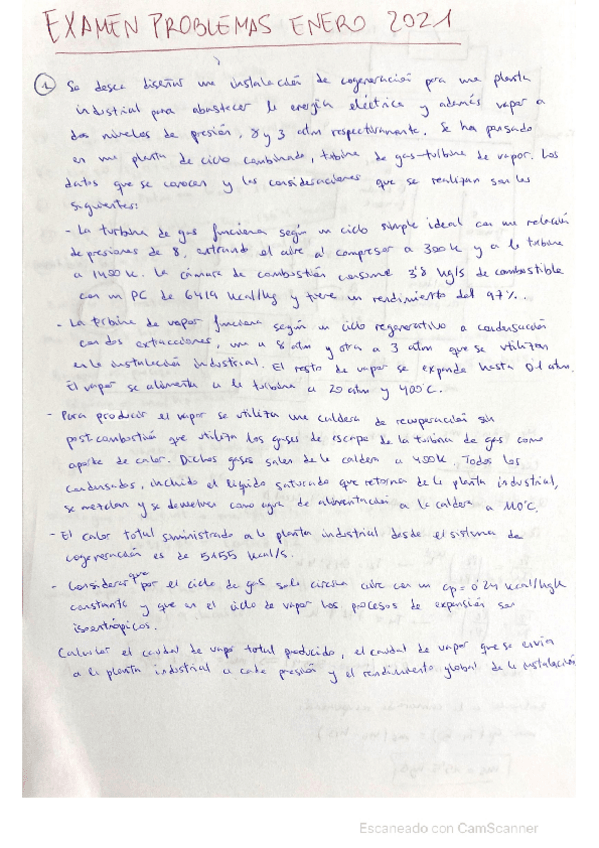 EXAMEN PROBLEMAS ENERO 2021
1 Se desea diseñar una instalación de cogeneración para una planta
industrial para abastecer le energía eléctrica y además vapor a
dos niveles de presión, 8 y 3 atm respectivamente. Se ha pensado
en una planta de ciclo combinado, turbina de gas-turbina de vapor. Los
datos que se conocen y las consideraciones que se realizan son las
siguientes:
- La turbina de gas funciona según un ciclo simple ideal con una relación
de presiones de 8, entrando el aire al compresor a 300k y a la turbina
a 1400k. La cámara de combustión consume 3'8 kg/s de combustible
con un PC de 6414 kcal/kg y tiene un rendimiento del 97%.
- La turbina de vapor funciona según un ciclo regenerativo a condensación
con dos extracciones, una a 8 atm y otra a 3 atm que se utilizan
en la instalación industrial. El resto de vapor se expande hasta 0'1 atm.
El vapor se alimenta a la turbina a 20 atm y 400°C.
- Para producir el vapor se utiliza una caldera de recuperación sin
postcombustión que utiliza los gases de escape de la turbina de gas como
aporte de calor. Dichos gases salen de la caldera a 450k. Todos los
condensados, incluido el líquido saturado que retorna de la planta industrial,
se mezclan y se devuelven como agua de alimentación a la caldera a 110°C.
- El calor total suministrado a la planta industrial desde el sistema de
cogeneración es de 5455 kcal/s.
- Considerar que por el ciclo de gas solo circula aire con un cp=0'24 kcal/kgk
constante y que en el ciclo de vapor los procesos de expansión son
isoentrópicos.
Calcular el caudal de vapor total producido, el caudal de vapor que se envía
a la planta industrial a cada presión y el rendimiento global de la instalación
Escaneado con CamScanner